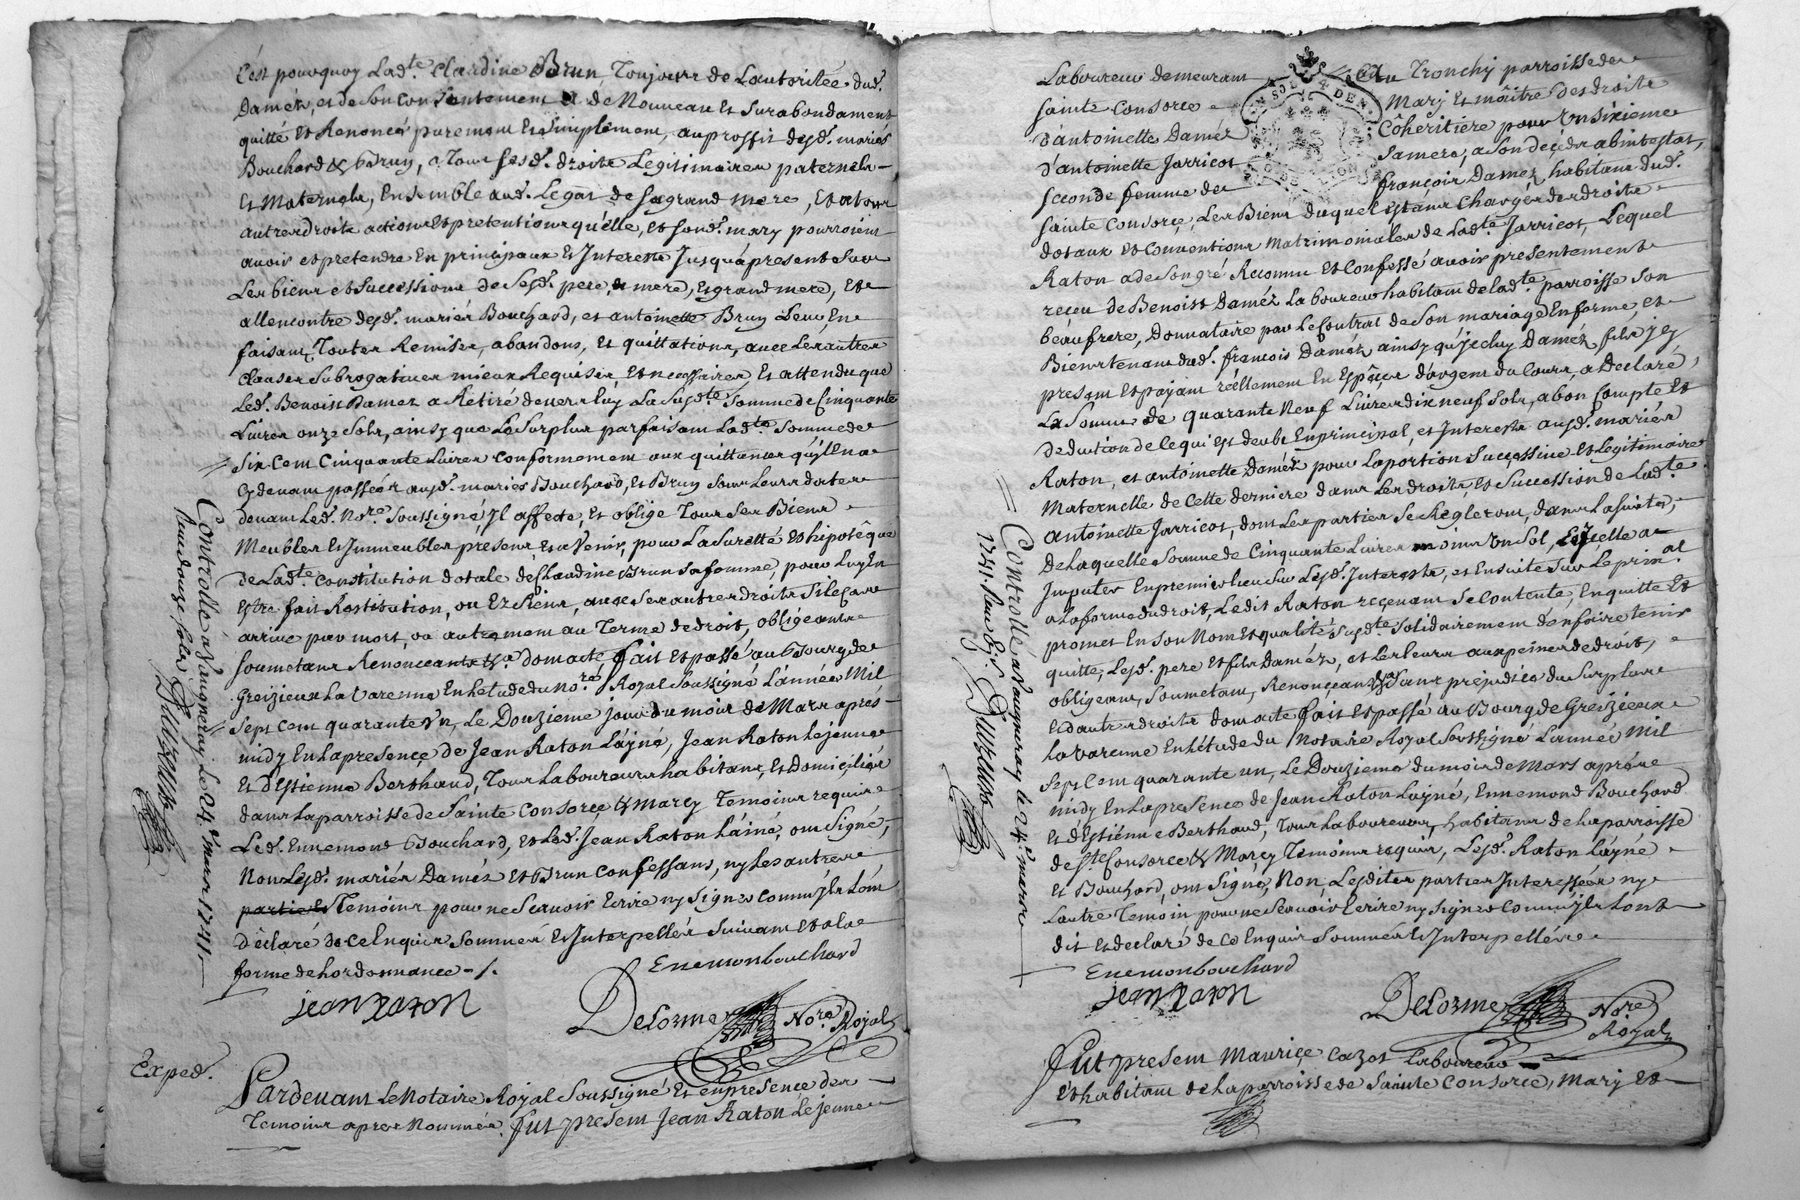 C'est pourquoy Lad.te Clardine Brun Toujours de Lautorité dud.
Daméz, et de Son Consentement a de Nouveau Et Surabondament
quitté Et Renoncé purement Et Simplement, au proffit desd. mariés
Bouchard & Brun, a Tous Sesd. droits Legitimaires paternels
Et Maternels, Ensemble aud. Legat de Sa grand mere, Et atous
autres droits actions Et pretentions qu'elle, et Sond. mary pourroient
avoir et pretendre En principaux Et Interests Jusqu'a present Sur
Les biens et Successions de Sesd. pere, & mere, Et grand mere, Et
allencontre desd. mariés Bouchard, et antoinette Brun Leur En
faisant Toutes Remises, abandons, Et quittations, avec Les autres
Clauses Subrogatives mieux Requises, Et necessaires, Et attendu que
Led. Benoist Damez a Retiré devers luy La Susd.te Somme de Cinquante
Livres onze Sols, ainsy que Le Surplus parfaisant Lad.te Somme de
Six Cent Cinquante Livres Conformement aux quittances qu'il En a
Cydevant passées auxd. mariés Bouchard, Et Brun Sous Leurs dates
devant Led. No.re Soussigné, Il affecte, Et oblige Tous Ses Biens
Meubles Et Immeubles presens Et a Venir, pour La Sureté Et hipotêque
de Lad.te Constitution dotale de Claudine Brun Sa femme, pour Luy En
Estre fait Restitution, ou Et Siens, avec Ses autres droits Si Le Cas
arrive par mort, ou autrement au Terme de droit, obligeants
Soumetans Renonceants &.a dont acte fait Et passé au Bourg de
Greizieux La Varenne En Létude du No.re Royal Soussigné L'année Mil
Sept Cent quarante Un, Le Douzieme Jour du mois de Mars aprés
midy En La presence de Jean Raton Layné, Jean Raton Lejeune
Et d'Estienne Berthaud, Tous Laboureurs habitans, Et domiciliés
dans La parroisse de Sainte Consorce & Marcy Temoins requis
Led. Ennemond Bouchard, Et Led. Jean Raton Lainé, ont Signé,
Non Lesd. mariés Daméz Et Brun Confessans, ny Les autres
parties Temoins pour ne Scavoir Ecrire ny Signer Comm'ils L'ont
Déclaré de Ce Enquis Sommés Et Interpellés Suivant Et a La
forme de Lordonnance -/.
Enemonbouchard
jean Raton
Delorme No.re Royal
Controllé à Vaugneray, Le 24.e mars 1741.
Receu douze Sols
Exped.
Pardevant Le Notaire Royal Soussigné Et en presence des
Temoins apres Nommés fut present Jean Raton Lejeune
Laboureur demeurant Au Tronchy parroisse de
Sainte Consorce Mary Et môitre des droits
d'antoinette Daméz Côheritiere pour Un Sixieme
d'antoinette Jarricot Sa mere, a Son décés abintestat,
Seconde femme de françois Daméz habitant dud.
Sainte Consorce, Les Biens duquel Estans Chargés des droits
dotaux Et Conventions Matrimoniales de Lad.te Jarricot, Lequel
Raton a de Son gré Reconnu Et Confessé avoir presentement
reçeu de Benoist Daméz Laboureur habitant de Lad.te parroisse Son
beaufrere, Donnataire par Le Contrat de Son mariage En forme, et
Bienstenant dud. françois Daméz ainsy qu'Iceluy Daméz fils Icy
present Et payant réellement En Espêces d'argent du Cours, a Declaré,
La Somme de quarante Neuf Livres dix neuf Sols, a bon Compte Et
Deduction de Ce qui Est deub En principal, et Interests auxd. mariés
Raton, et antoinette Daméz pour La portion Successive Et Legitimaire
Maternelle de Cette derniere dans Les droits, Et Succession de Lad.te
Antoinette Jarricot, dont Les parties Se Regleront, dans La Suitte,
De Laquelle Somme de Cinquante Livres moins Un Sol, Icelle a
Imputer En premier Lieu Sur Lesd. Interests, et En Suite Sur Le prin.al
a La forme du droit, Ledit Raton reçevant Se Contente, En quitte Et
promet En Son Nom Et qualité Susd.te Solidairement d'En faire tenir
quitte, Lesd. pere Et fils Daméz, et Les Leurs aux peines de droit,
obligeant, Soumetant, Renonçeant &.a Sans préjudice du Surplus
Et dautres droits dont acte fait Et passé au Bourg de Greizieux
La Varenne En Létude du Notaire Royal Soussigné L'année Mil
Sept Cent quarante un, Le Douzieme du mois de Mars aprés
midy En La presence de Jean Raton Layné, Ennemond Bouchard
Et d'Estienne Berthaud, Tous Laboureurs, habitans de La parroisse
de S.te Consorce & Marcy Temoins requis, Lesd. Raton Layné
Et Bouchard, ont Signé, Non Lesdites parties Interessées ny
Lautre Temoin pour ne Scavoir Ecrire ny Signer Comm'ils Lont
dit Et declaré de Ce Enquis Sommés Et Interpellés
Enemonbouchard
jean Raton
Delorme No.re
Royal
Controllé a Vaugneray le 24.e mars
1741. Receu
fut present Maurice Cazot Laboureur
Et habitant de La parroisse de Sainte Consorce, Mary Et